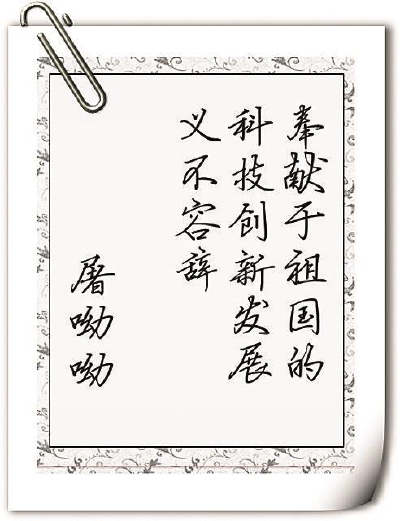 奉献于祖国的
科技创新发展
义不容辞
屠呦呦